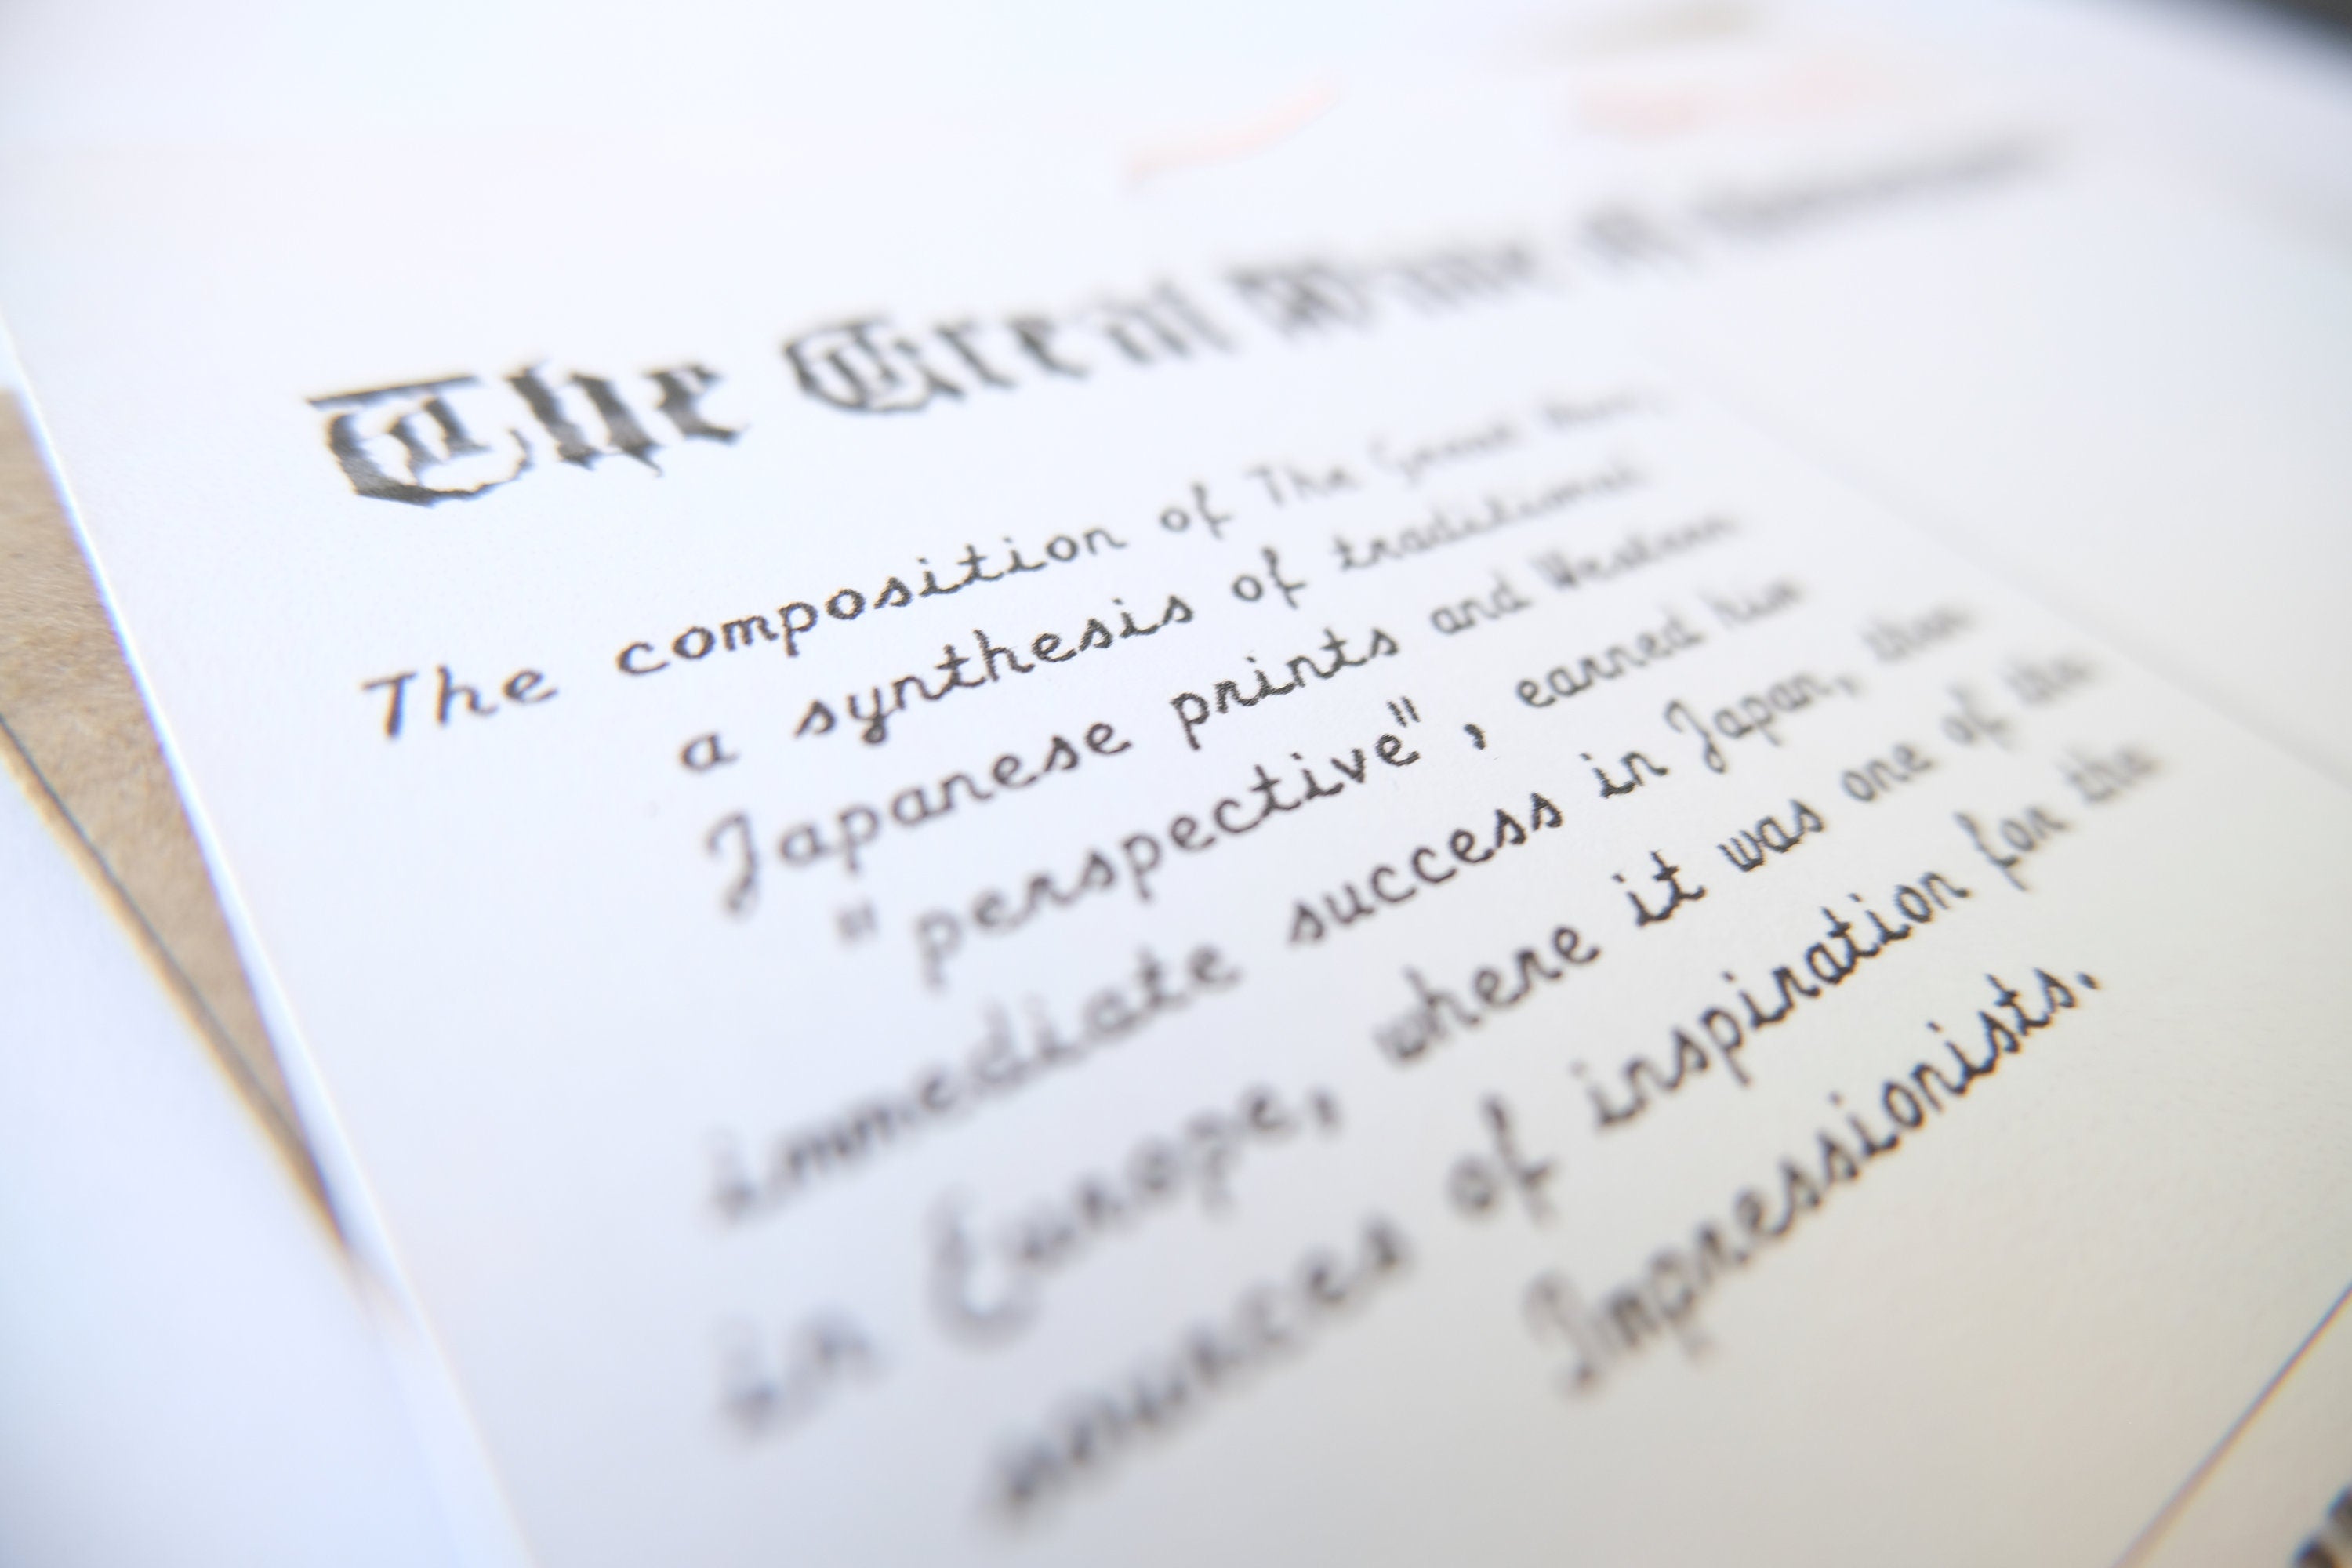 The Great Wave of
The composition of The Great Wave,
a synthesis of traditional
Japanese prints and Western
"perspective", earned him
immediate success in Japan, then
in Europe, where it was one of the
sources of inspiration for the
Impressionists.